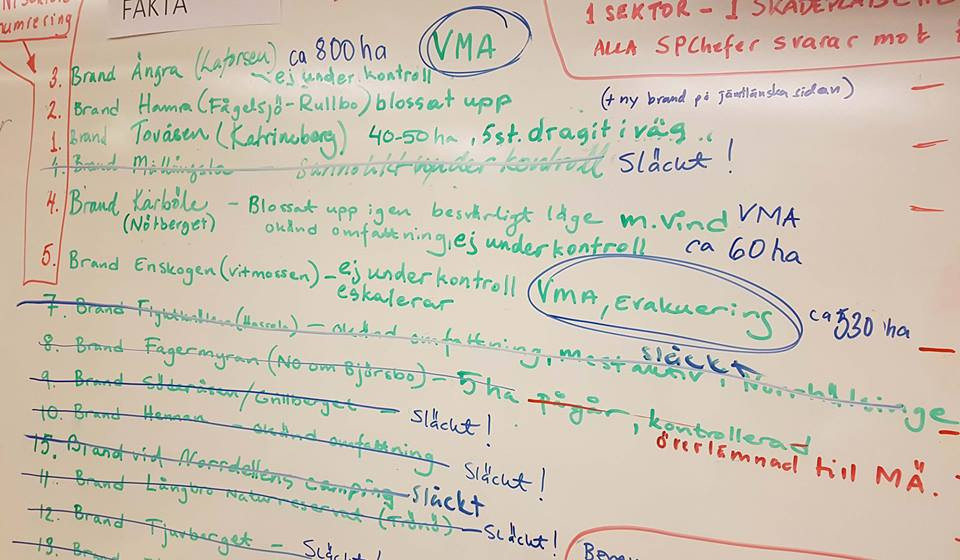 numrering
FAKTA
1 SEKTOR - 1
ALLA SPChefer svarar mot
3. Brand Ängra (Laforsen) ca 800 ha VMA
- ej under kontroll
2. Brand Hamra (Fågelsjö-Rullbo) blossat upp (+ ny brand på jämtländska sidan)
1. Brand Tovåsen (Katrineberg) 40-50 ha, 5 st. dragit iväg.
4. Brand under kontroll Släckt!
4. Brand Kårböle - Blossat upp igen besvärligt läge m. vind VMA
(Nötberget) okänd omfattning, ej under kontroll ca 60 ha
5. Brand Enskogen (vitmossen) - ej under kontroll VMA, Evakuering ca 530 ha
eskalerar
7. Brand - okänd omfattning, mest aktiv, släckt
8. Brand Fagermyran (NO om Björsbo) - 5 ha pågår, kontrollerad
överlämnad till MÄ.
9. Brand Söderåsen/Grillberget - Släckt!
10. Brand Hennan - okänd omfattning Släckt!
15. Brand vid Norrdellens camping släckt
11. Brand Långbro Naturreservat (Trönö) - Släckt!
12. Brand Tjuvberget - Släckt!
13. Brand